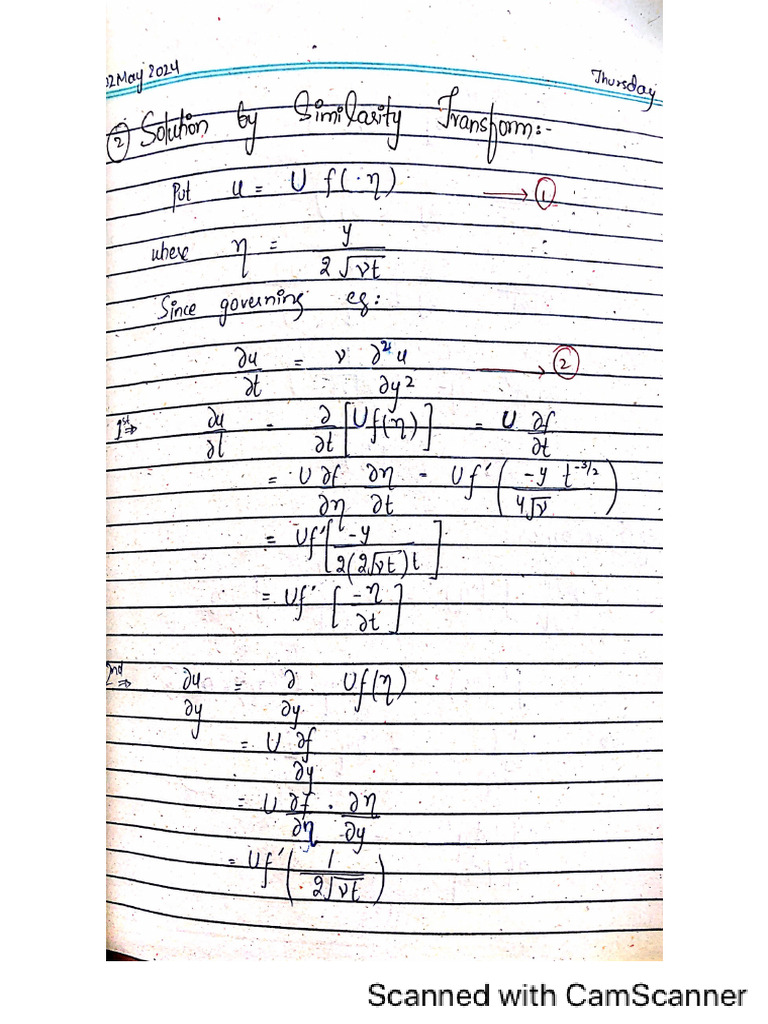 02 May 2024 Thursday
② Solution by Similarity Transform:-
Put u = U f(η) → ①
where η = y / 2√νt
Since governing eq:
∂u/∂t = ν ∂²u/∂y² → ②
1st ⇒ ∂u/∂t = ∂/∂t [Uf(η)] = U ∂f/∂t
= U ∂f/∂η ∂η/∂t = Uf' (-y t^-3/2 / 4√ν)
= Uf' [-y / 2(2√νt)t]
= Uf' [-η / ∂t]
2nd ⇒ ∂u/∂y = ∂/∂y Uf(η)
= U ∂f/∂y
= U ∂f/∂η . ∂η/∂y
= Uf' (1 / 2√νt)
Scanned with CamScanner